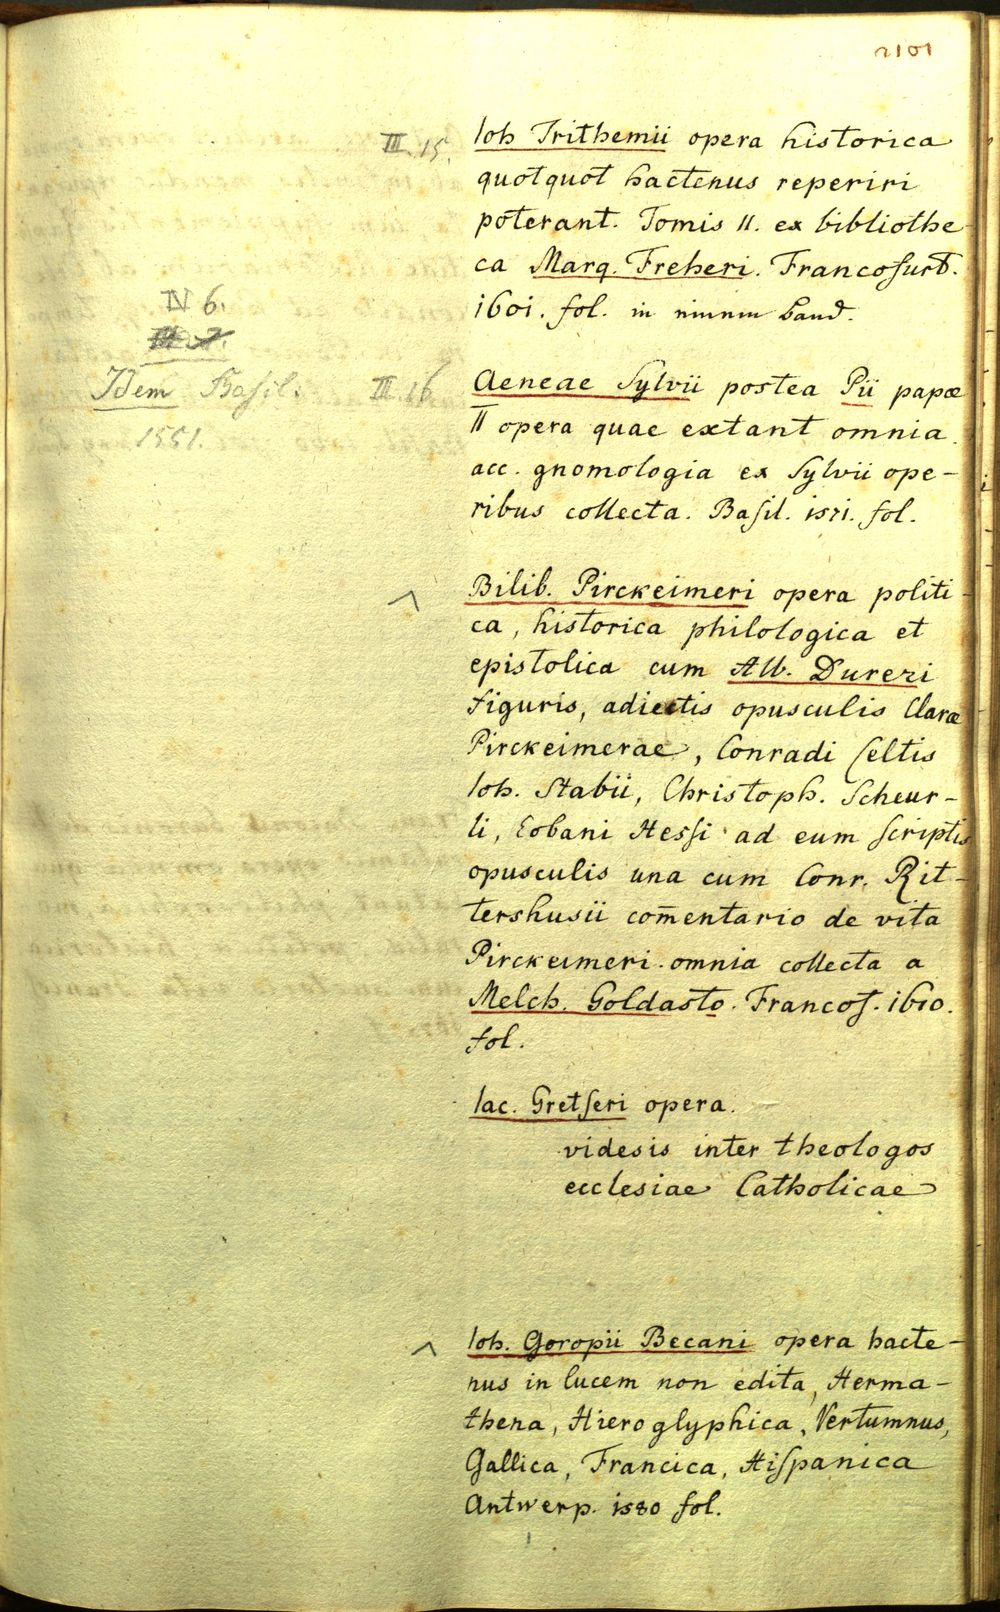 2101
III. 15.
Ioh Trithemii opera historica
quotquot hactenus reperiri
poterant. Tomis II. ex bibliothe-
ca Marq. Freheri. Francofurt.
1601. fol. in einem Band.
IV 6.
Idem Basil.
1551.
III. 16
Aeneae Sylvii postea Pii papae
II opera quae extant omnia.
acc. gnomologia ex Sylvii ope-
ribus collecta. Basil. 1571. fol.
Bilib. Pirckeimeri opera politi-
ca, historica philologica et
epistolica cum Alb. Dureri
figuris, adiectis opusculis Clarae
Pirckeimerae, Conradi Celtis
Ioh. Stabii, Christoph. Scheur-
li, Eobani Hessi ad eum scriptis
opusculis una cum Conr. Rit-
tershusii com̄entario de vita
Pirckeimeri. omnia collecta a
Melch. Goldasto. Francof. 1610.
fol.
Iac. Gretseri opera.
videsis inter theologos
ecclesiae Catholicae
Ioh. Goropii Becani opera hacte-
nus in lucem non edita, Herma-
thena, Hieroglyphica, Vertumnus,
Gallica, Francica, Hispanica
Antwerp. 1580 fol.